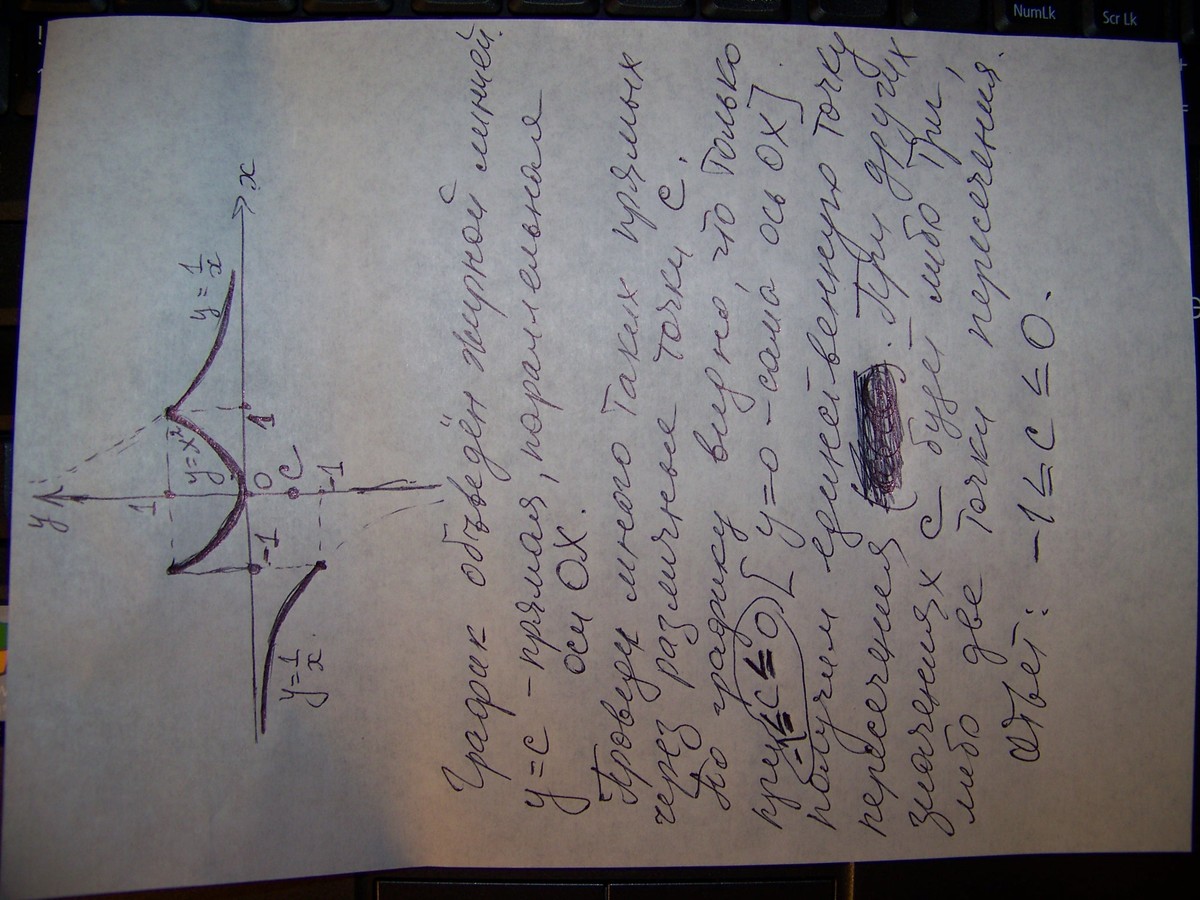 NumLk
Scr Lk
y
1
y=x²
y=1/x
x
1
0
C
-1
-1
y=1/x
График объведён жирной линией.
y=c - прямая, параллельная
оси OX.
Проведу много таких прямых
через различные точки C.
По графику видно, что только
при -1≤C≤0 [y=0 - сама ось OX]
получим единственную точку
пересечения. При других
значениях C будет либо три,
либо две точки пересечения.
Ответ: -1≤C≤0.